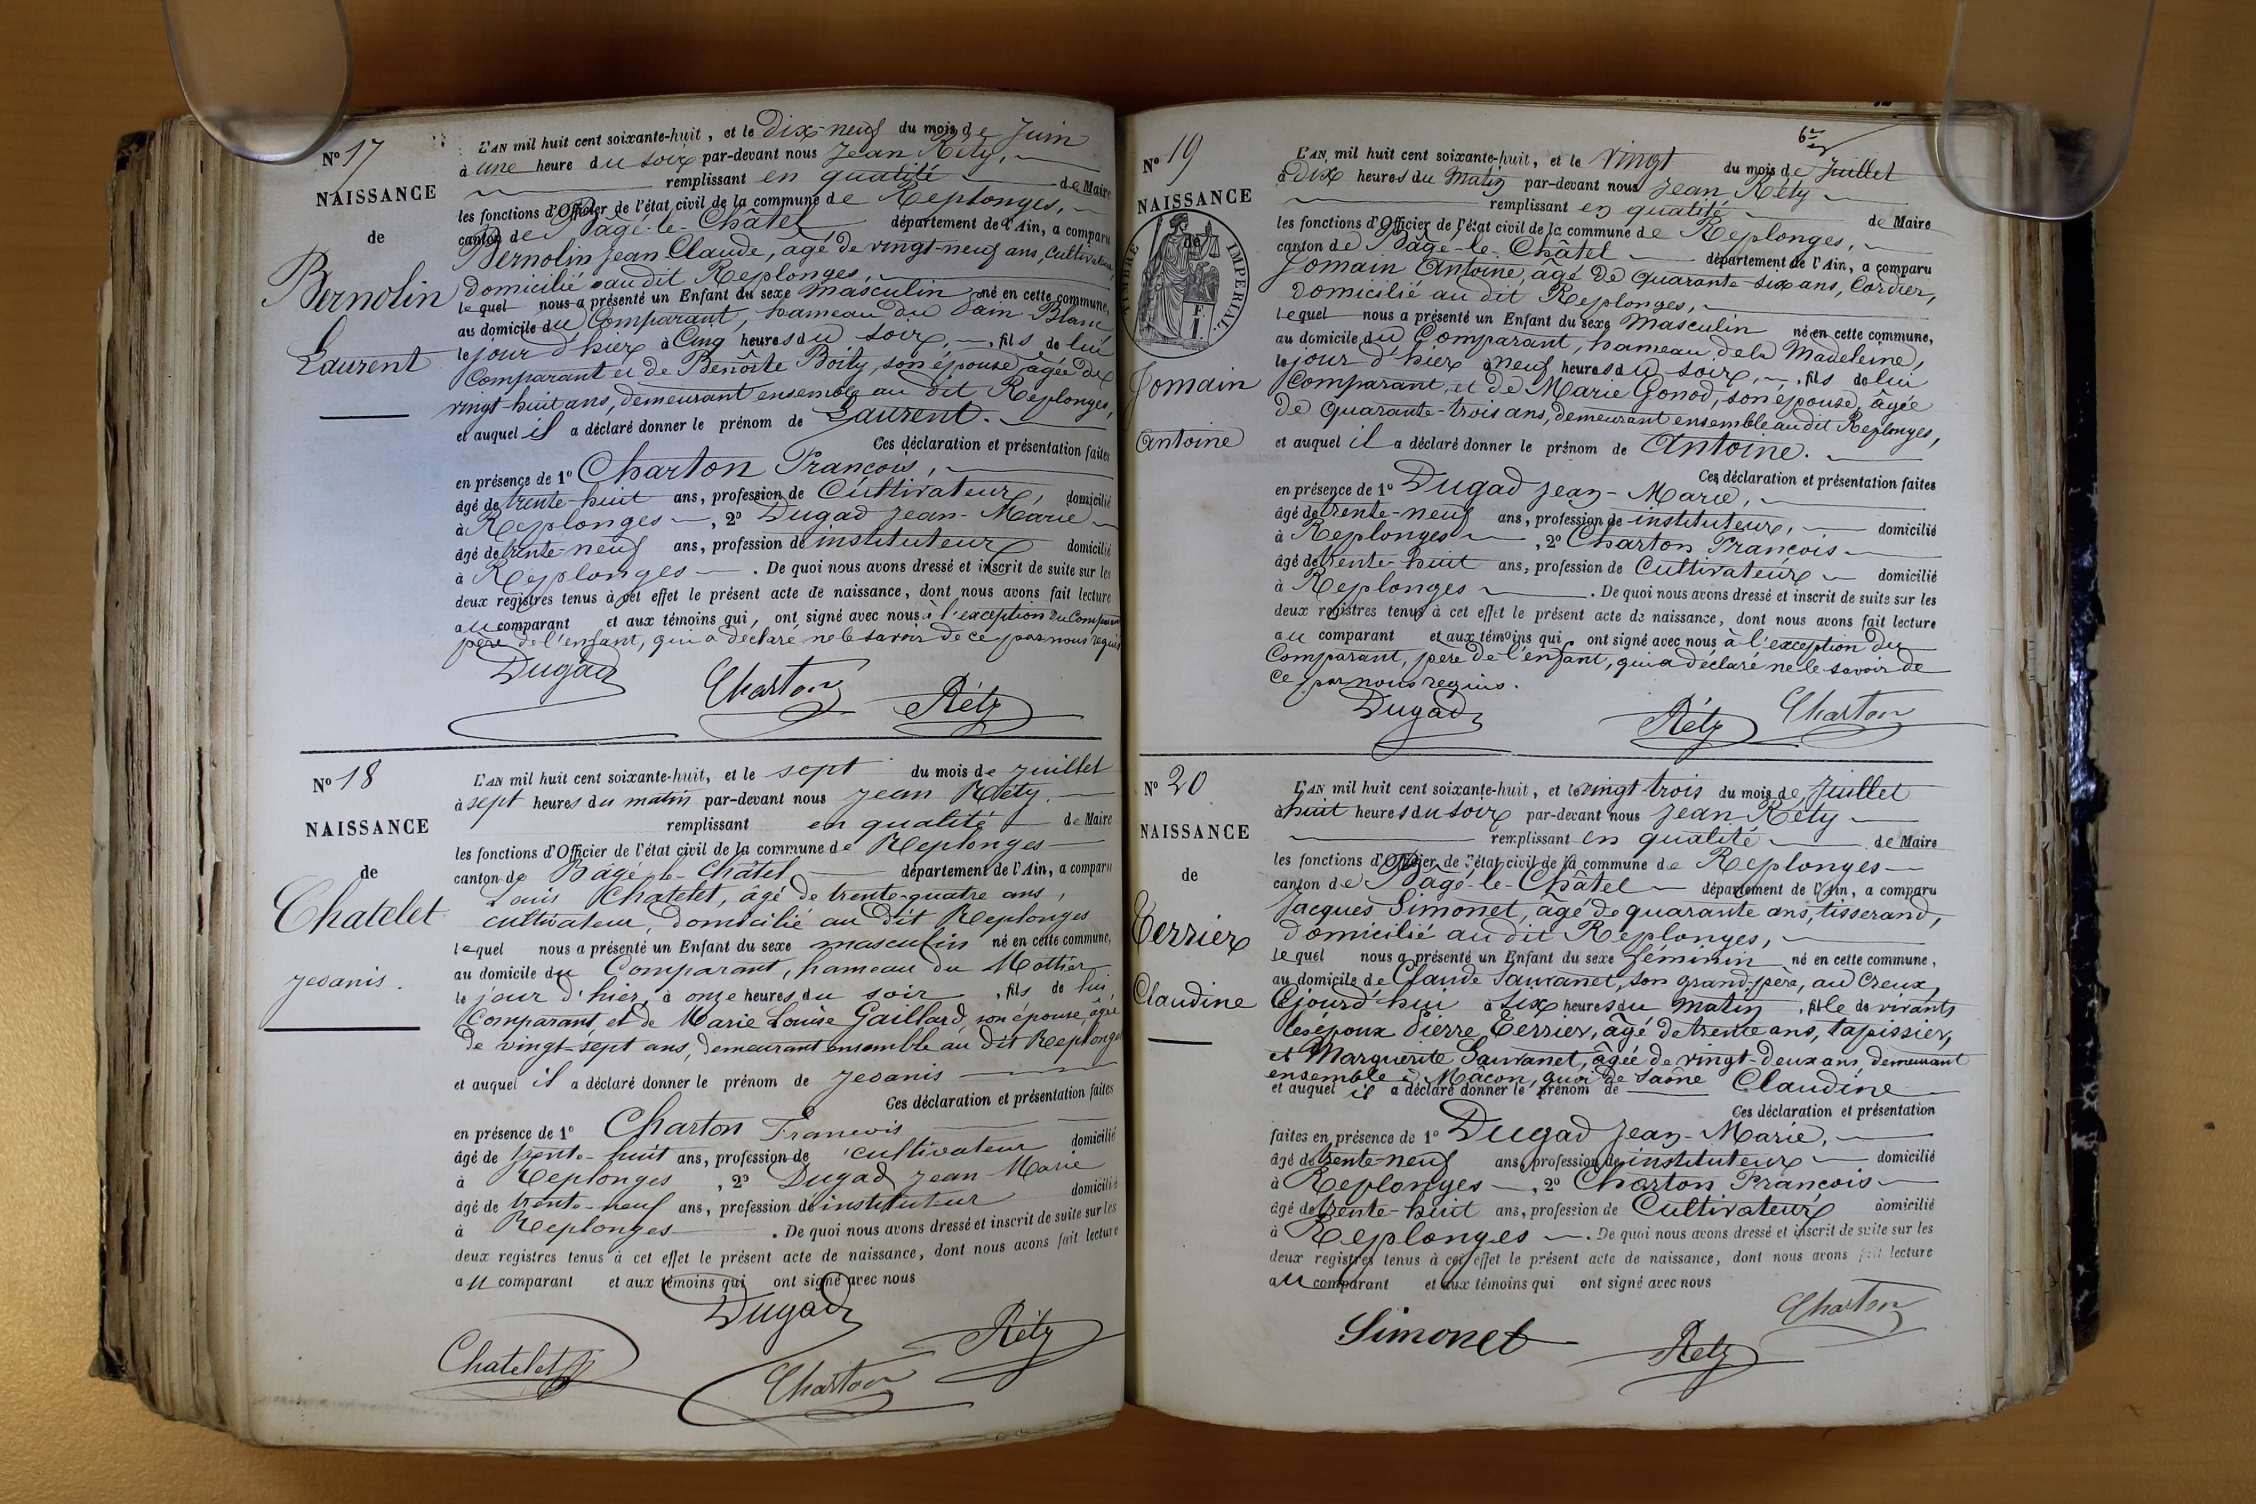 N° 17
NAISSANCE
de
Bernolin
Laurent
L'AN mil huit cent soixante-huit, et le dix-neuf du mois de Juin
à une heure du soir par-devant nous Jean Réty,
remplissant en qualité de Maire
les fonctions d'Officier de l'état civil de la commune de Replonges,
canton de Bâgé-le-Châtel département de l'Ain, a comparu
Bernolin Jean Claude, âgé de vingt-neuf ans, cultivateur,
domicilié audit Replonges,
lequel nous a présenté un Enfant du sexe masculin né en cette commune,
au domicile du Comparant, hameau du Dam Blanc
le jour d'hier à Cinq heures du soir, fils de lui
Comparant et de Benoîte Boity, son épouse, âgée de
vingt-huit ans, demeurant ensemble au dit Replonges,
et auquel il a déclaré donner le prénom de Laurent.
Ces déclaration et présentation faites
en présence de 1° Charton François,
âgé de trente-huit ans, profession de Cultivateur, domicilié
à Replonges, 2° Dugad Jean-Marie
âgé de trente-neuf ans, profession de instituteur domicilié
à Replonges. De quoi nous avons dressé et inscrit de suite sur les
deux registres tenus à cet effet le présent acte de naissance, dont nous avons fait lecture
au comparant et aux témoins qui, ont signé avec nous à l'exception du Comparant
père de l'enfant, qui a déclaré ne le savoir de ce par nous requis
Dugad
Charton
Réty
N° 18
NAISSANCE
de
Chatelet
Jeoanis.
L'AN mil huit cent soixante-huit, et le sept du mois de juillet
à sept heures du matin par-devant nous Jean Réty.
remplissant en qualité de Maire
les fonctions d'Officier de l'état civil de la commune de Replonges
canton de Bâgé-le-Châtel département de l'Ain, a comparu
Louis Chatelet, âgé de trente-quatre ans,
cultivateur, domicilié au dit Replonges
lequel nous a présenté un Enfant du sexe masculin né en cette commune,
au domicile du Comparant, hameau du Mottier
le jour d'hier, à onze heures du soir, fils de lui
Comparant, et de Marie Louise Gaillard, son épouse, âgée
de vingt-sept ans, demeurant ensemble au dit Replonges
et auquel il a déclaré donner le prénom de Jeoanis
Ces déclaration et présentation faites
en présence de 1° Charton Francois
âgé de trente-huit ans, profession de cultivateur domicilié
à Replonges, 2° Dugad Jean Marie
âgé de trente-neuf ans, profession de instituteur domicilié
à Replonges. De quoi nous avons dressé et inscrit de suite sur les
deux registres tenus à cet effet le présent acte de naissance, dont nous avons fait lecture
au comparant et aux témoins qui ont signé avec nous
Dugad
Chatelet
Charton
Réty
6e
N° 19
NAISSANCE
de
TIMBRE IMPERIAL.
1 F.
Jomain
Antoine
L'AN mil huit cent soixante-huit, et le vingt du mois de Juillet
à dix heures du matin par-devant nous Jean Réty
remplissant en qualité de Maire
les fonctions d'Officier de l'état civil de la commune de Replonges,
canton de Bâgé-le-Châtel département de l'Ain, a comparu
Jomain Antoine, âgé de quarante-six ans, Cordier,
domicilié au dit Replonges,
lequel nous a présenté un Enfant du sexe Masculin né en cette commune,
au domicile du Comparant, hameau de la Madeleine,
le jour d'hier à neuf heures du soir, fils de lui
Comparant, et de Marie Gonod, son épouse, âgée
de quarante-trois ans, demeurant ensemble audit Replonges,
et auquel il a déclaré donner le prénom de Antoine.
Ces déclaration et présentation faites
en présence de 1° Dugad Jean-Marie,
âgé de trente-neuf ans, profession de instituteur, domicilié
à Replonges, 2° Charton François
âgé de trente-huit ans, profession de Cultivateur domicilié
à Replonges. De quoi nous avons dressé et inscrit de suite sur les
deux registres tenus à cet effet le présent acte de naissance, dont nous avons fait lecture
au comparant et aux témoins qui ont signé avec nous à l'exception du
Comparant, père de l'enfant, qui a déclaré ne le savoir de
ce par nous requis.
Dugad
Réty
Charton
N° 20
NAISSANCE
de
Terrier
Claudine
L'AN mil huit cent soixante-huit, et le vingt trois du mois de Juillet
à huit heures du soir par-devant nous Jean Réty
remplissant en qualité de Maire
les fonctions d'Officier de l'état civil de la commune de Replonges
canton de Bâgé-le-Châtel département de l'Ain, a comparu
Jacques Simonet, âgé de quarante ans, tisserand,
domicilié au dit Replonges,
lequel nous a présenté un Enfant du sexe féminin né en cette commune,
au domicile de Claude Sauvanet, son grand-père, au Creux,
Cejourd'hui à six heures du matin, fille de vivants
les époux Pierre Terrier, âgé de trente ans, tapissier,
et Marguerite Sauvanet, âgée de vingt-deux ans, demeurant
ensemble à Mâcon, quai de Saône
et auquel il a déclaré donner le prénom de Claudine
Ces déclaration et présentation
faites en présence de 1° Dugad Jean-Marie,
âgé de trente-neuf ans, profession de instituteur domicilié
à Replonges, 2° Charton François
âgé de trente-huit ans, profession de Cultivateur domicilié
à Replonges. De quoi nous avons dressé et inscrit de suite sur les
deux registres tenus à cet effet le présent acte de naissance, dont nous avons fait lecture
au comparant et aux témoins qui ont signé avec nous
Charton
Simonet
Réty